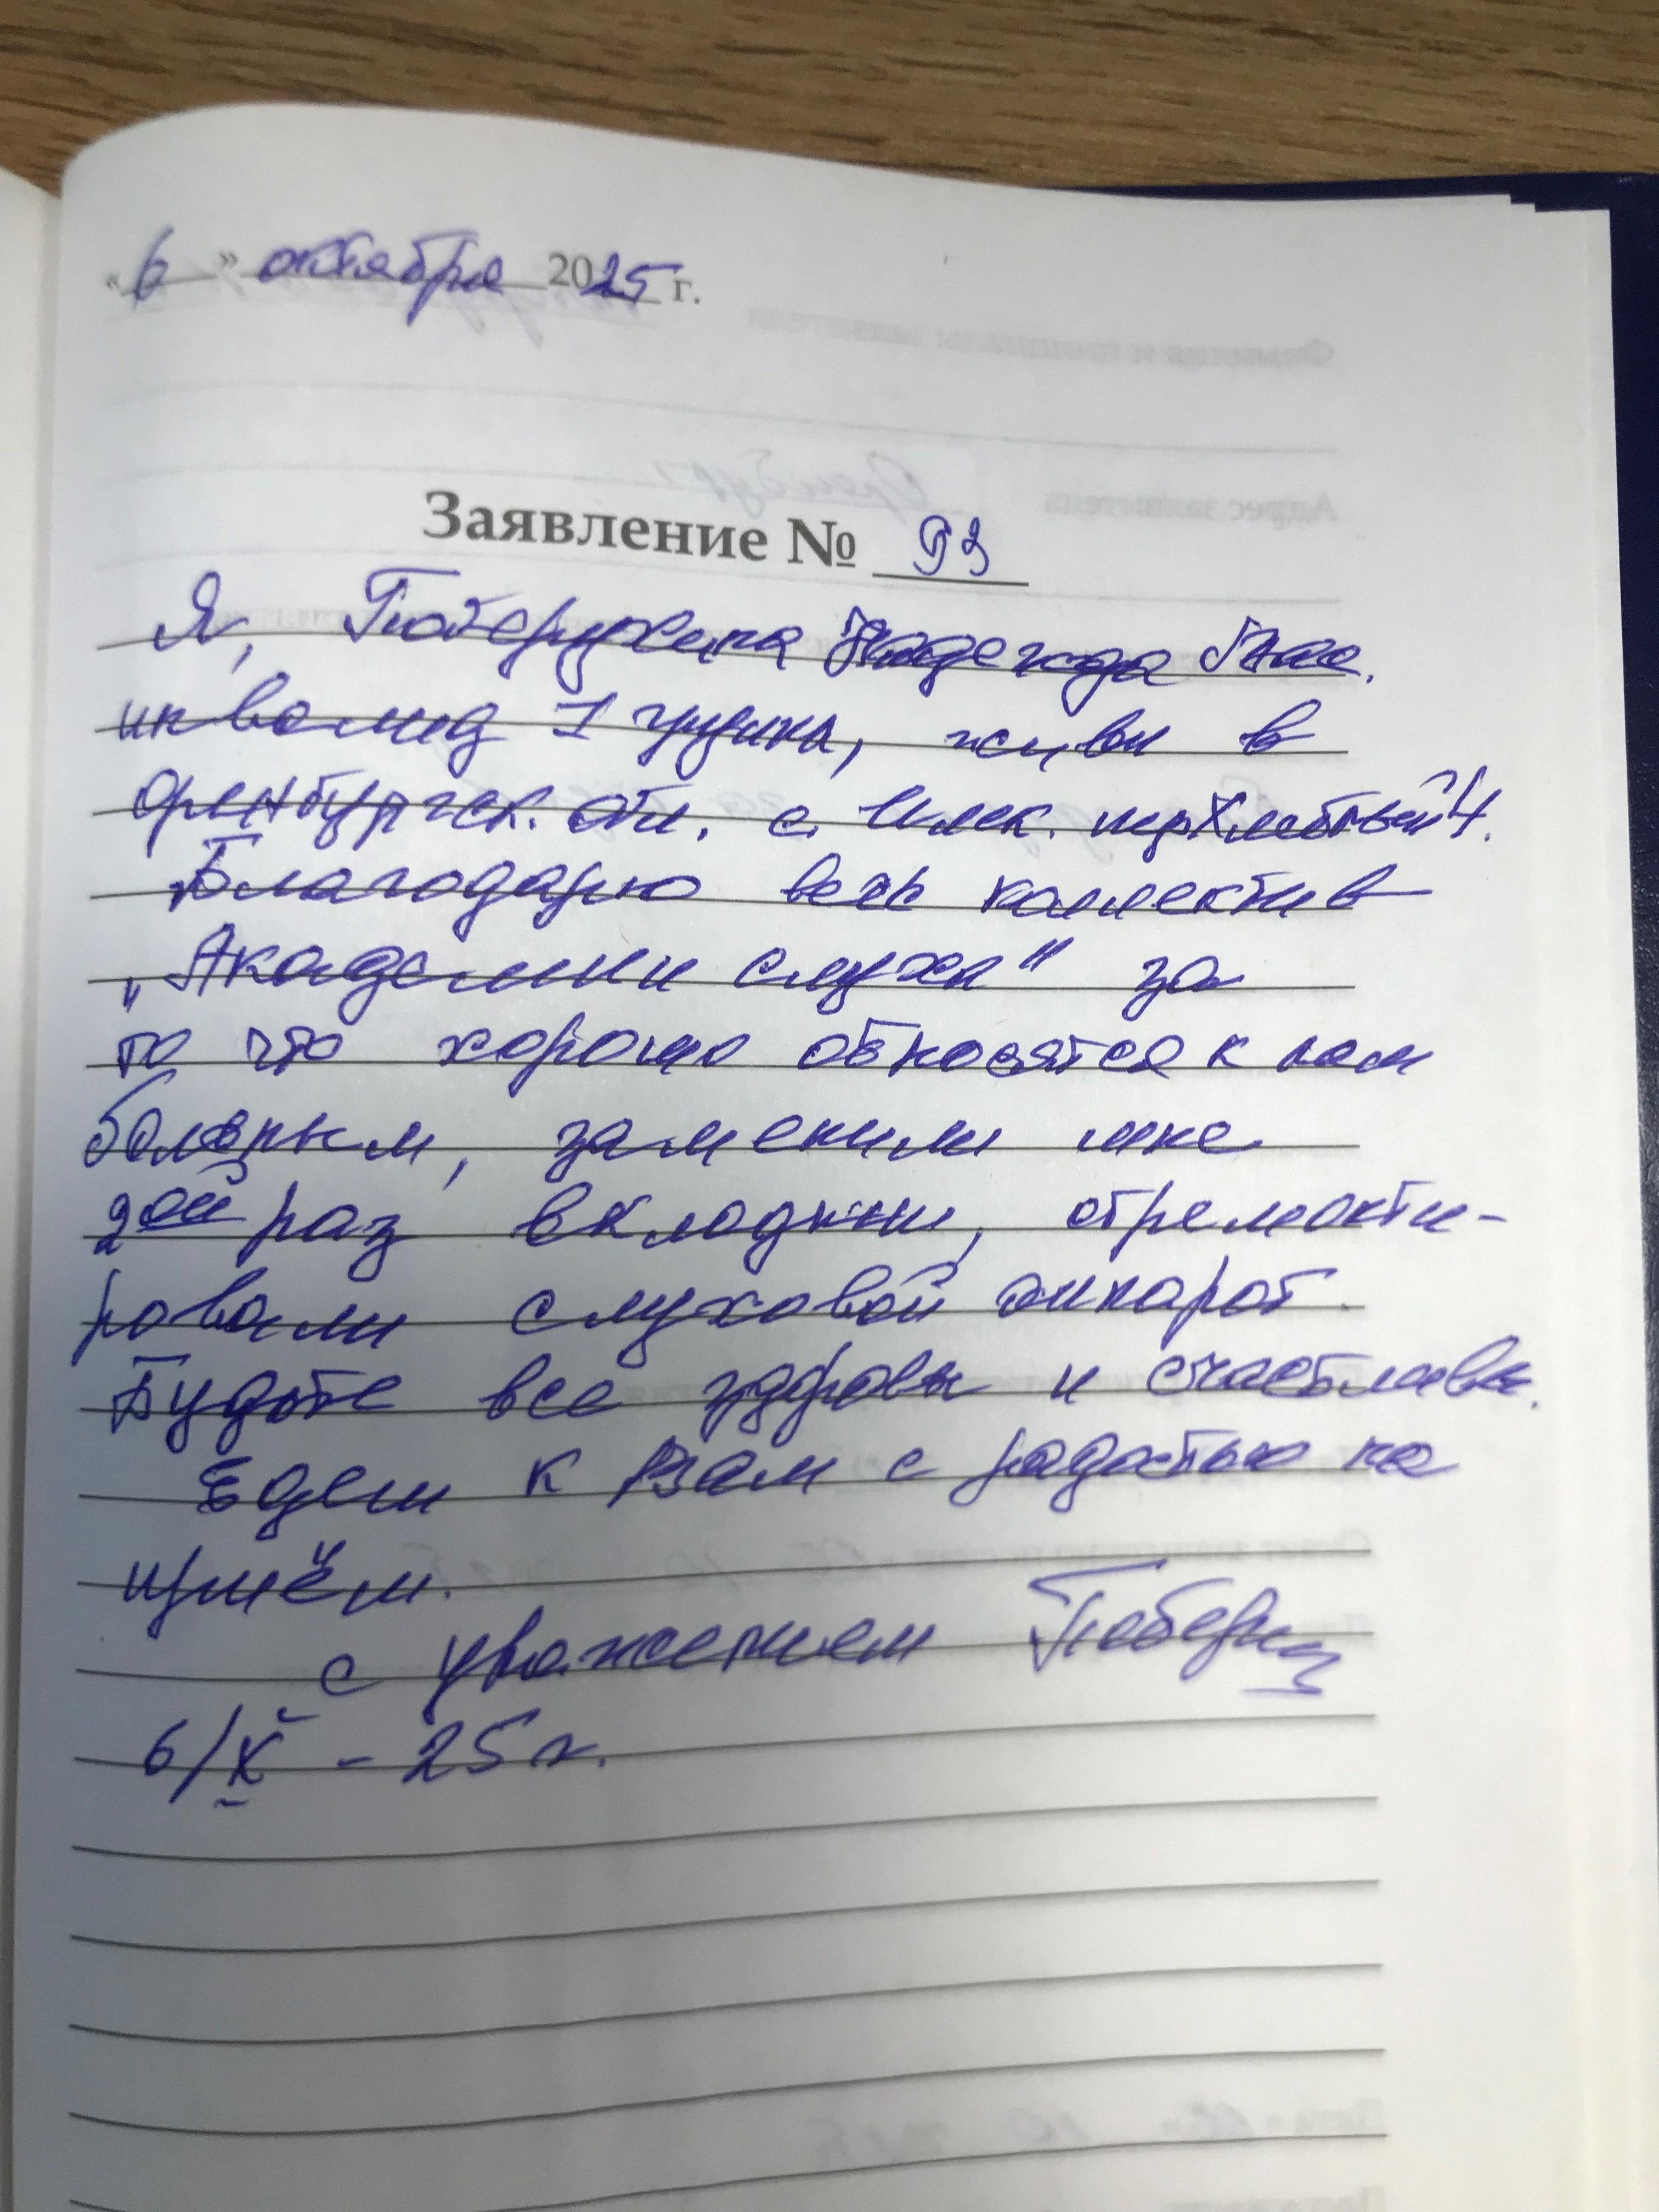 « 6 » октября 2025 г.
Заявление № 93
Я, Надежда
инвалид 1 группы, живу в
Оренбургск. обл. с. Илек. пер Хлебный 4.
Благодарю весь коллектив
„Академии слуха" за
то что хорошо относятся к нам
больным, заменили мне
2ой раз вкладыши, отремонти-
ровали слуховой аппарат.
Будьте все здоровы и счастливы.
Едем к Вам с радостью на
приём.
с уважением
6/X - 25 г.